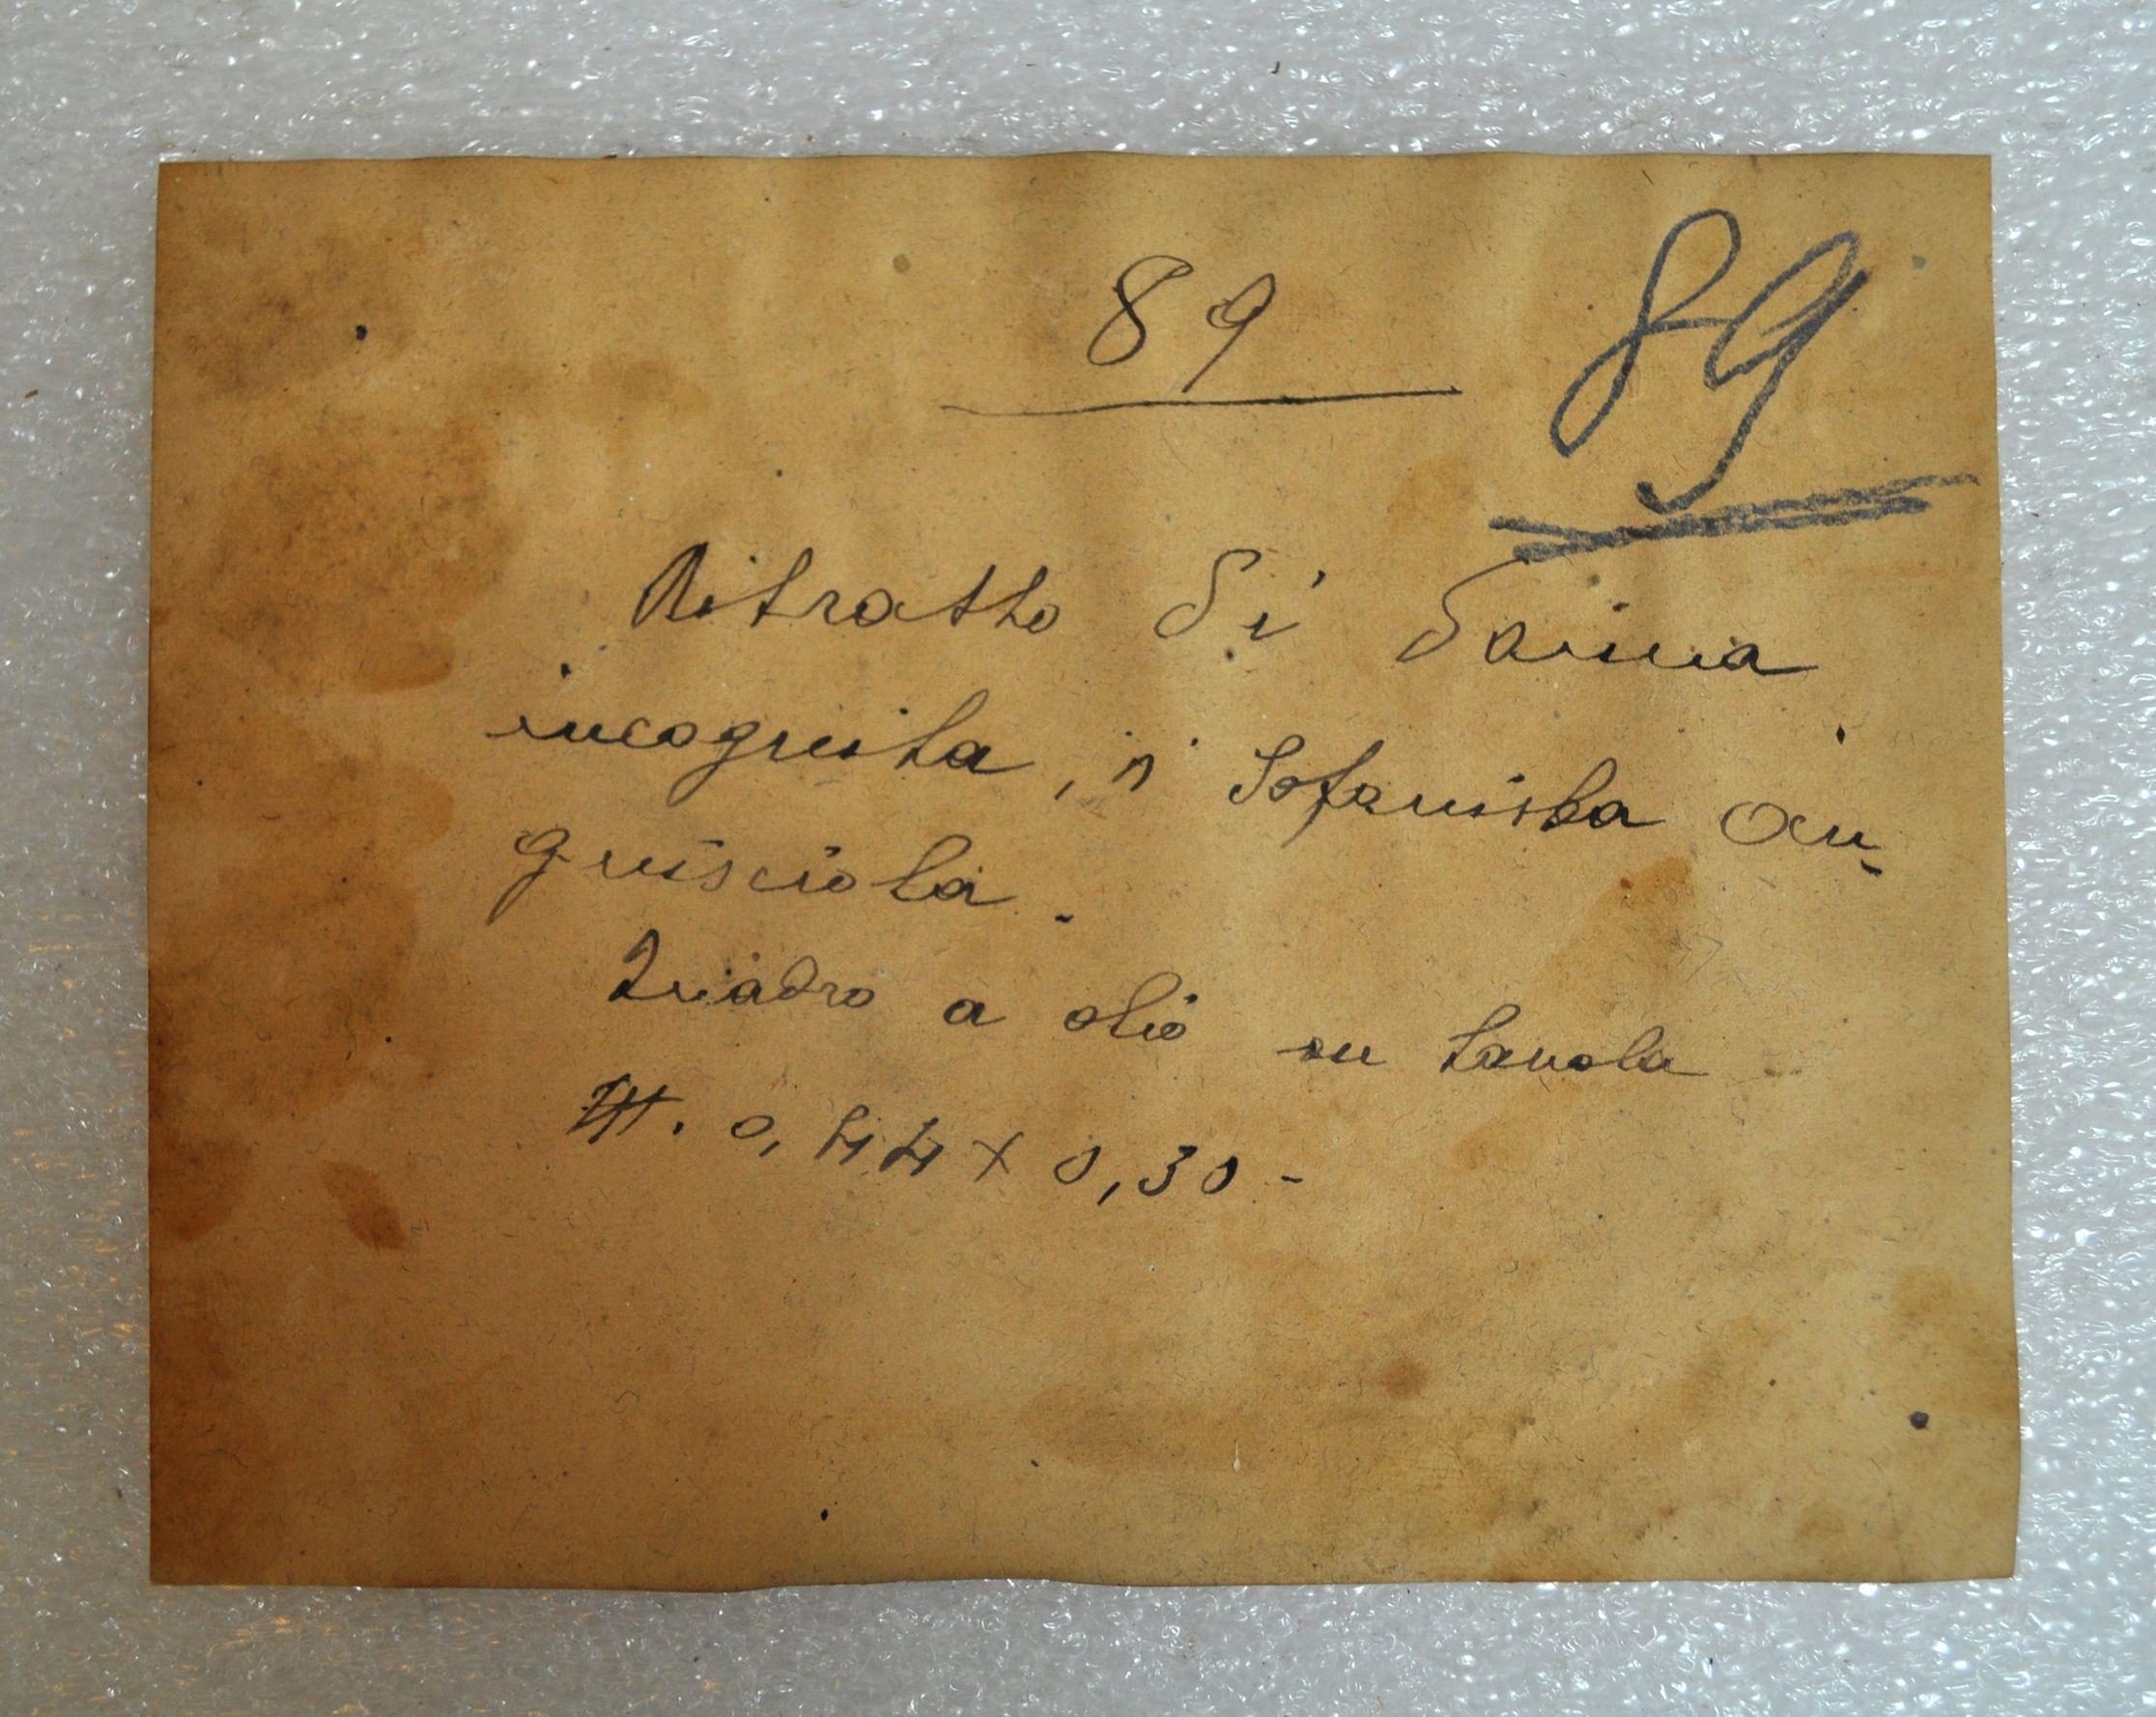 89 89
Ritratto di dama
incognita, di Sofanisba an-
guisciola.
Quadro a olio su tavola
M. 0,44 x 0,30 -